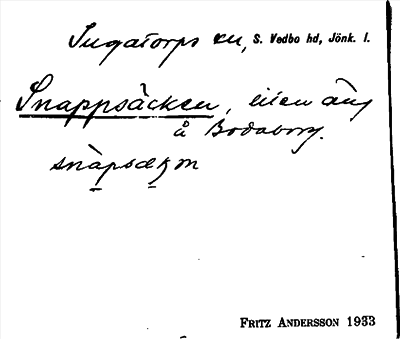 Ingatorps sn, S. Vedbo hd, Jönk. l.
Snappsäcken, liten äng
å Bodaborg.
snàpsækən
FRITZ ANDERSSON 1933